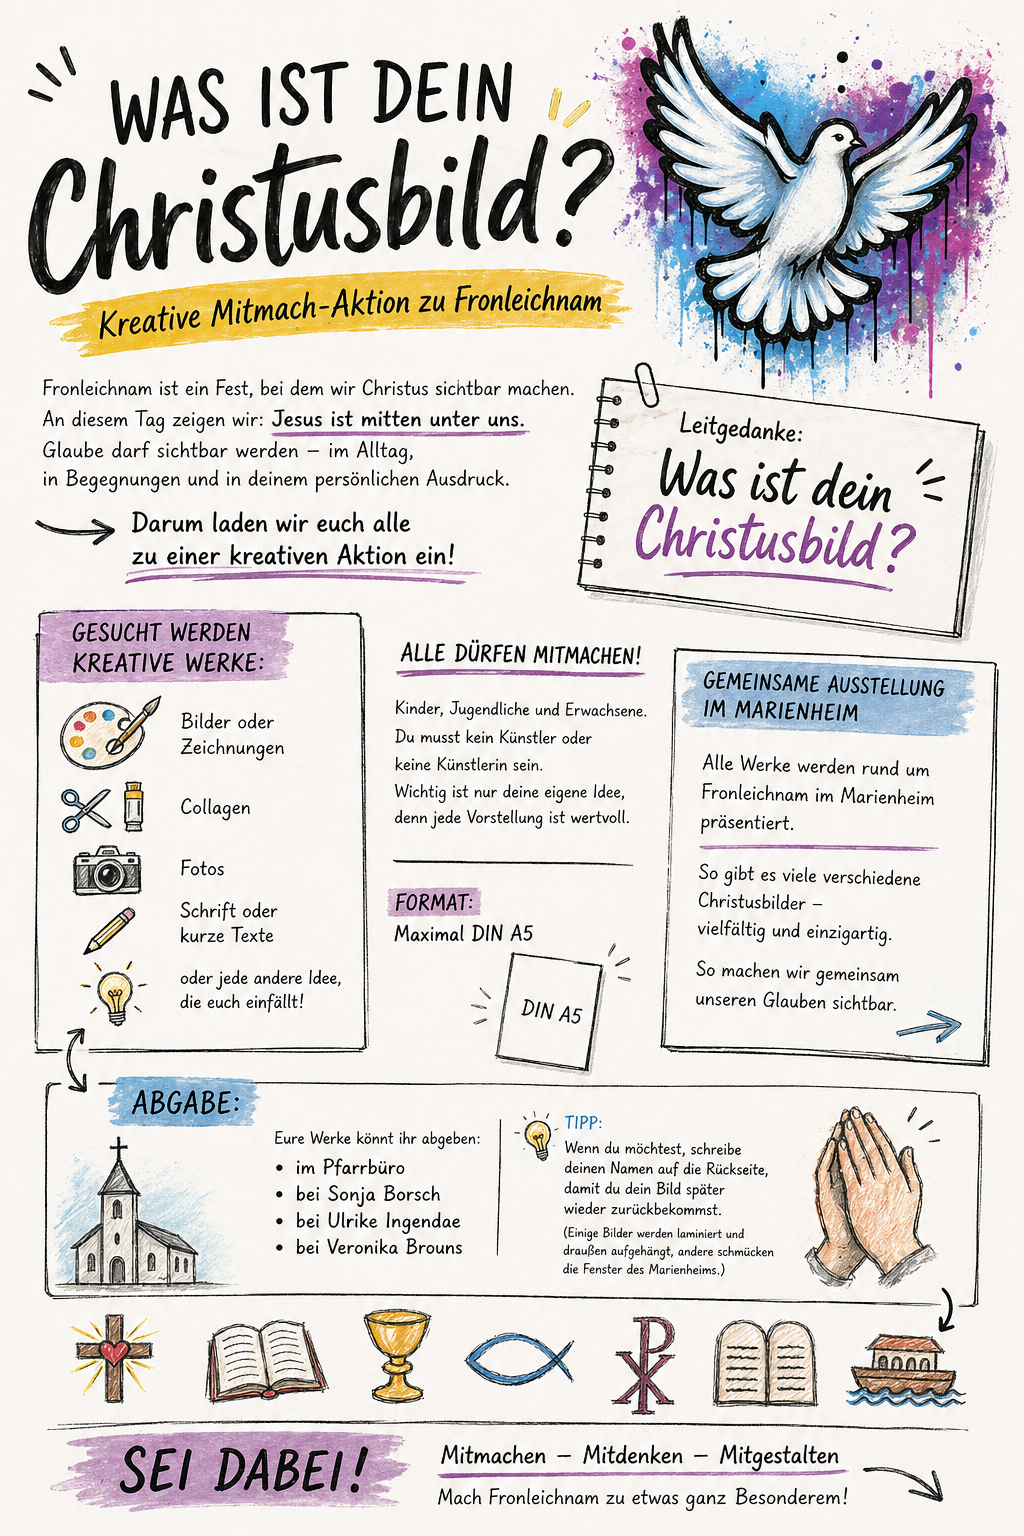 WAS IST DEIN
Christusbild?
Kreative Mitmach-Aktion zu Fronleichnam
Fronleichnam ist ein Fest, bei dem wir Christus sichtbar machen.
An diesem Tag zeigen wir: Jesus ist mitten unter uns.
Glaube darf sichtbar werden – im Alltag,
in Begegnungen und in deinem persönlichen Ausdruck.
Darum laden wir euch alle
zu einer kreativen Aktion ein!
Leitgedanke:
Was ist dein
Christusbild?
GESUCHT WERDEN
KREATIVE WERKE:
Bilder oder
Zeichnungen
Collagen
Fotos
Schrift oder
kurze Texte
oder jede andere Idee,
die euch einfällt!
ALLE DÜRFEN MITMACHEN!
Kinder, Jugendliche und Erwachsene.
Du musst kein Künstler oder
keine Künstlerin sein.
Wichtig ist nur deine eigene Idee,
denn jede Vorstellung ist wertvoll.
FORMAT:
Maximal DIN A5
DIN A5
GEMEINSAME AUSSTELLUNG
IM MARIENHEIM
Alle Werke werden rund um
Fronleichnam im Marienheim
präsentiert.
So gibt es viele verschiedene
Christusbilder –
vielfältig und einzigartig.
So machen wir gemeinsam
unseren Glauben sichtbar.
ABGABE:
Eure Werke könnt ihr abgeben:
• im Pfarrbüro
• bei Sonja Borsch
• bei Ulrike Ingendae
• bei Veronika Brouns
TIPP:
Wenn du möchtest, schreibe
deinen Namen auf die Rückseite,
damit du dein Bild später
wieder zurückbekommst.
(Einige Bilder werden laminiert und
draußen aufgehängt, andere schmücken
die Fenster des Marienheims.)
SEI DABEI!
Mitmachen – Mitdenken – Mitgestalten
Mach Fronleichnam zu etwas ganz Besonderem!